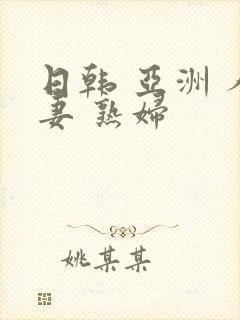 日韩 亞洲 人
妻 熟婦
姚某某